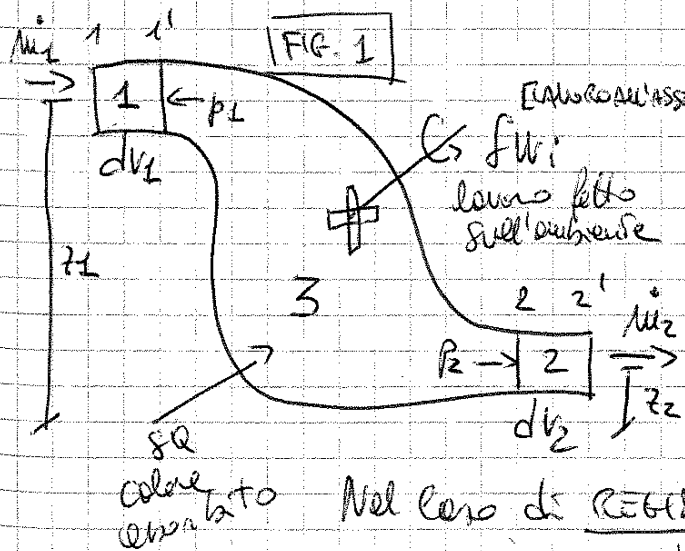 ṁ1 1 1' FIG. 1
1 ← p1 [LAVORO ALL'ASSE
dV1 δWi
lavoro fatto
sull'ambiente
z1
3
2 2' ṁ2
P2 → 2
z2
dV2
δQ
calore
assorbito Nel caso di REGI